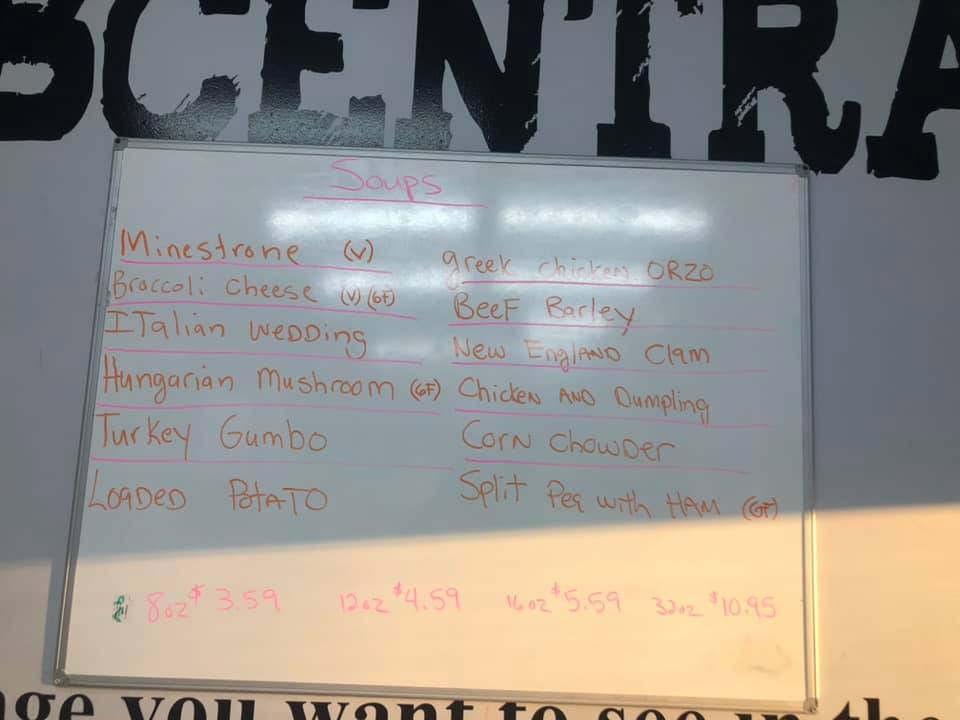 BCENTRA
Soups
Minestrone (V)
Broccoli Cheese (V) (GF)
ITalian WEDDing
Hungarian Mushroom (GF)
Turkey Gumbo
LOaDED PotATO
greek chicken ORZO
BeeF Barley
New EnglAND Clam
Chicken AND Dumpling
Corn ChowDer
Split Pea with HAM (GF)
8oz $3.59 12oz $4.59 16oz $5.59 32oz $10.95
nge you want to see in the